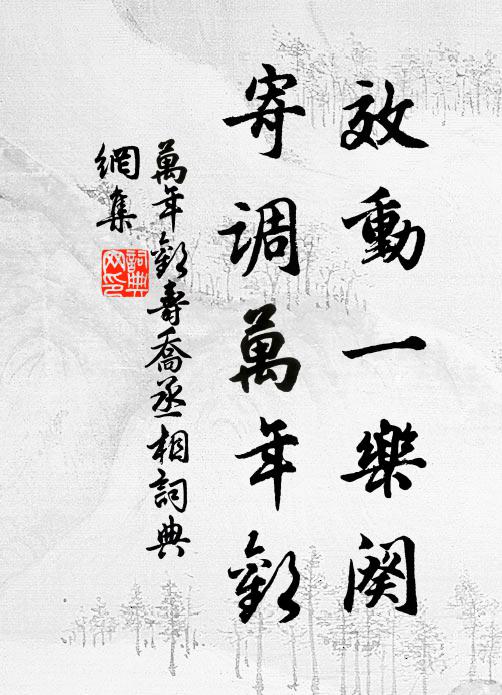 效動一樂闋
寄調萬年歡
萬年歡壽喬丞相詞典
網集
詞典
网印